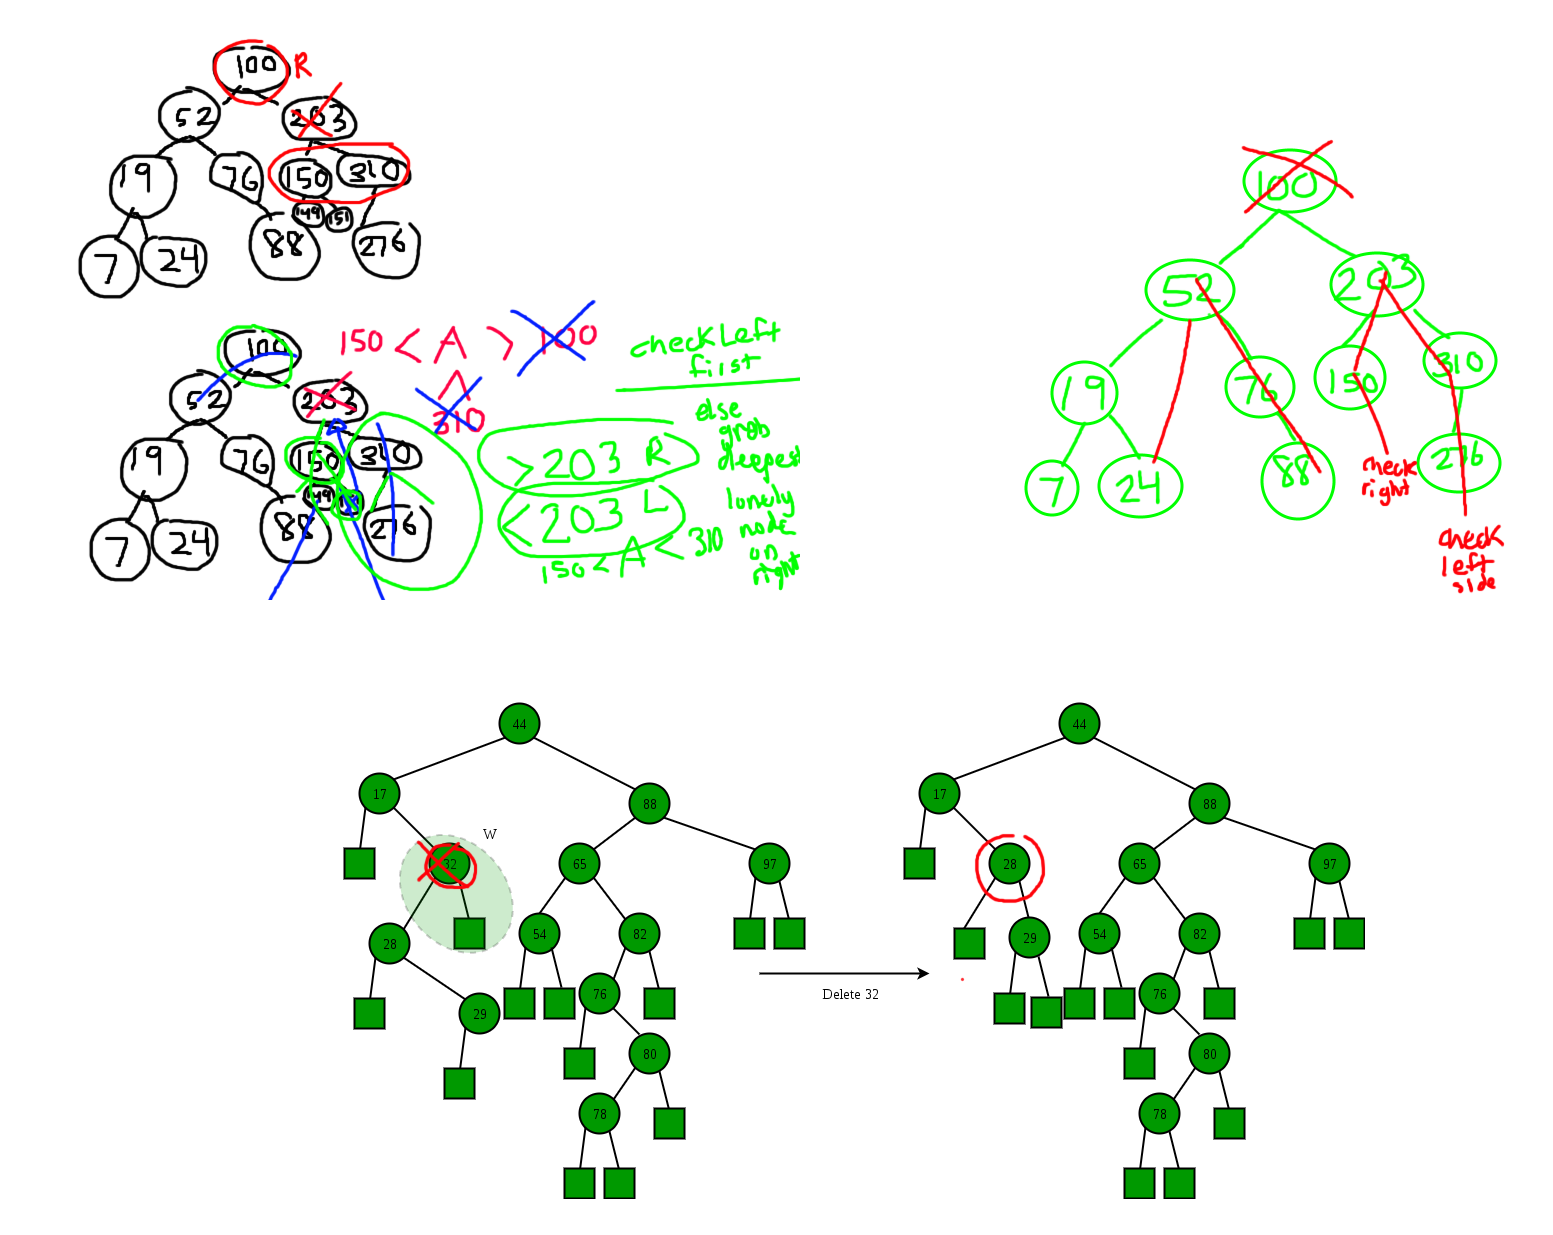 100 R
52 203
19 76 150 310
149 151
7 24 88 276
100
52 203
19 76 150 310
149
7 24 88 276
150 < A > 100
^
310
check Left
first
else
grab
deepest
lonely
node
on
right
> 203 R
< 203 L
150 < A < 310
100
52 203
19 76 150 310
7 24 88 276
check
right
check
left
side
44
17 88
W
32 65 97
28 54 82
29 76
80
78
Delete 32
44
17 88
28 65 97
29 54 82
76
80
78